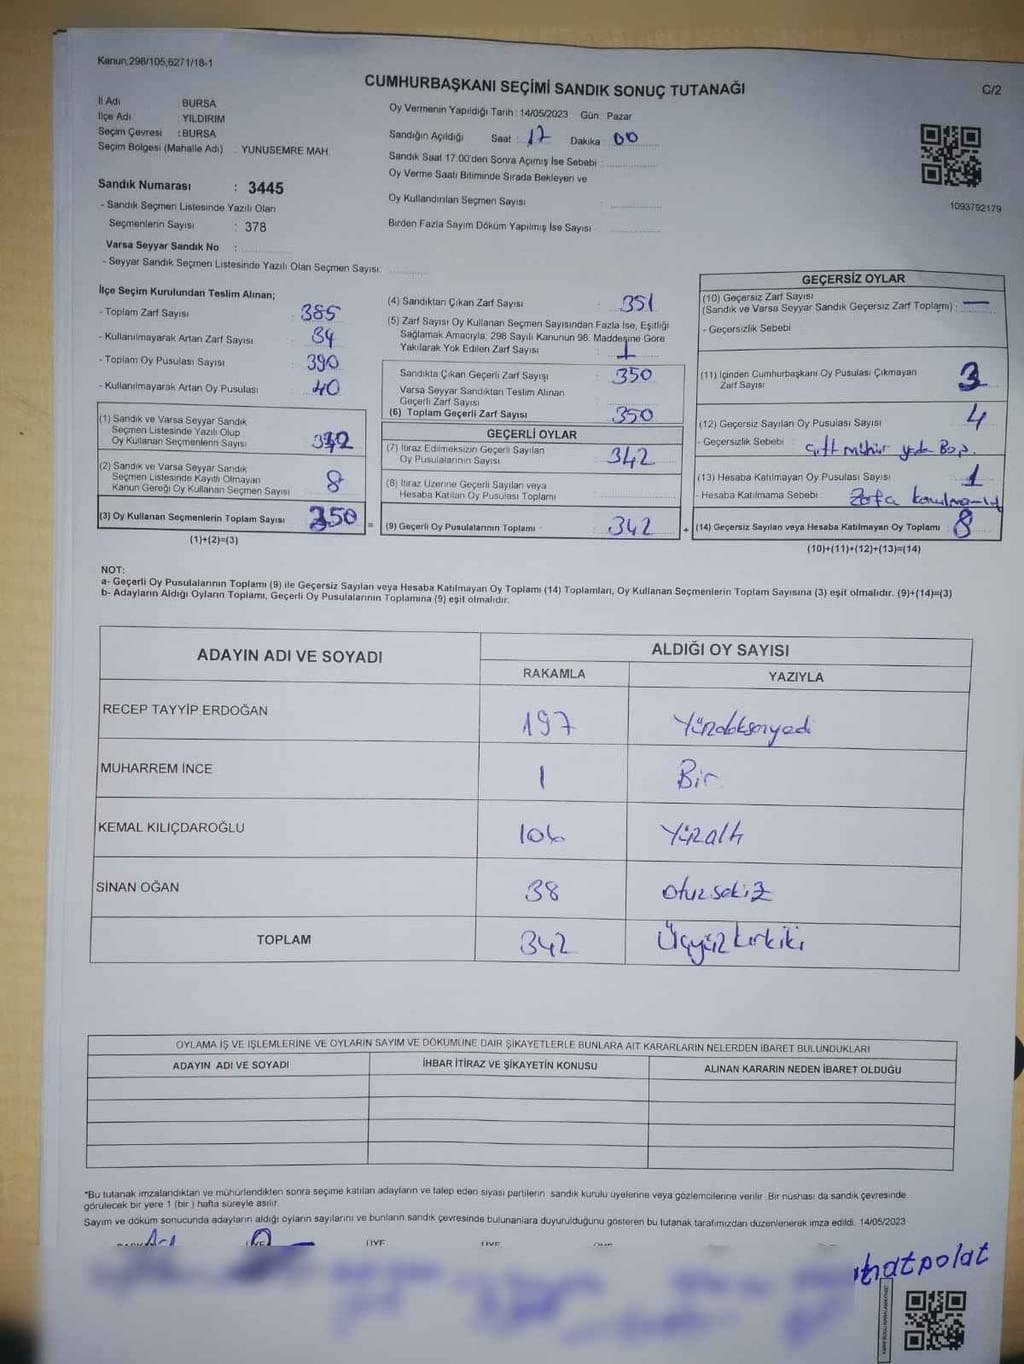 Kanun;298/105;6271/18-1
CUMHURBAŞKANI SEÇİMİ SANDIK SONUÇ TUTANAĞI
C/2
İl Adı : BURSA
İlçe Adı : YILDIRIM
Seçim Çevresi : BURSA
Seçim Bölgesi (Mahalle Adı) YUNUSEMRE MAH.
Sandık Numarası : 3445
- Sandık Seçmen Listesinde Yazılı Olan
Seçmenlerin Sayısı : 378
Varsa Seyyar Sandık No :
- Seyyar Sandık Seçmen Listesinde Yazılı Olan Seçmen Sayısı:
Oy Vermenin Yapıldığı Tarih : 14/05/2023 Gün Pazar
Sandığın Açıldığı Saat : 17 Dakika : 00
Sandık Saat 17:00'den Sonra Açımış İse Sebebi :
Oy Verme Saati Bitiminde Sırada Bekleyen ve
Oy Kullandırılan Seçmen Sayısı
Birden Fazla Sayım Döküm Yapılmış İse Sayısı :
1093792179
İlçe Seçim Kurulundan Teslim Alınan;
- Toplam Zarf Sayısı : 385
- Kullanılmayarak Artan Zarf Sayısı : 34
- Toplam Oy Pusulası Sayısı : 390
- Kullanılmayarak Artan Oy Pusulası : 40
(1) Sandık ve Varsa Seyyar Sandık
Seçmen Listesinde Yazılı Olup
Oy Kullanan Seçmenlerin Sayısı : 342
(2) Sandık ve Varsa Seyyar Sandık
Seçmen Listesinde Kayıtlı Olmayan
Kanun Gereği Oy Kullanan Seçmen Sayısı 8
(3) Oy Kullanan Seçmenlerin Toplam Sayısı : 350
(1)+(2)=(3)
(4) Sandıktan Çıkan Zarf Sayısı : 351
(5) Zarf Sayısı Oy Kullanan Seçmen Sayısından Fazla İse, Eşitliği
Sağlamak Amacıyla; 298 Sayılı Kanunun 98. Maddesine Göre
Yakılarak Yok Edilen Zarf Sayısı : 1
Sandıkta Çıkan Geçerli Zarf Sayısı : 350
Varsa Seyyar Sandıktan Teslim Alınan
Geçerli Zarf Sayısı
(6) Toplam Geçerli Zarf Sayısı : 350
GEÇERLİ OYLAR
(7) İtiraz Edilmeksizin Geçerli Sayılan
Oy Pusulalarının Sayısı : 342
(8) İtiraz Üzerine Geçerli Sayılan veya
Hesaba Katılan Oy Pusulası Toplamı
= (9) Geçerli Oy Pusulalarının Toplamı : 342
GEÇERSİZ OYLAR
(10) Geçersiz Zarf Sayısı
(Sandık ve Varsa Seyyar Sandık Geçersiz Zarf Toplamı) : —
- Geçersizlik Sebebi
(11) İçinden Cumhurbaşkanı Oy Pusulası Çıkmayan
Zarf Sayısı 3
(12) Geçersiz Sayılan Oy Pusulası Sayısı : 4
- Geçersizlik Sebebi : çift mühür yada Boş.
(13) Hesaba Katılmayan Oy Pusulası Sayısı : 1
- Hesaba Katılmama Sebebi : Zarfa konulmamış
+ (14) Geçersiz Sayılan veya Hesaba Katılmayan Oy Toplamı : 8
(10)+(11)+(12)+(13)=(14)
NOT:
a- Geçerli Oy Pusulalarının Toplamı (9) ile Geçersiz Sayılan veya Hesaba Katılmayan Oy Toplamı (14) Toplamları, Oy Kullanan Seçmenlerin Toplam Sayısına (3) eşit olmalıdır. (9)+(14)=(3)
b- Adayların Aldığı Oyların Toplamı, Geçerli Oy Pusulalarının Toplamına (9) eşit olmalıdır.
ADAYIN ADI VE SOYADI ALDIĞI OY SAYISI
RAKAMLA YAZIYLA
RECEP TAYYİP ERDOĞAN 197 Yüzdoksanyedi
MUHARREM İNCE 1 Bir
KEMAL KILIÇDAROĞLU 106 Yüzaltı
SİNAN OĞAN 38 otuzsekiz
TOPLAM 342 Üçyüzkırkiki
OYLAMA İŞ VE İŞLEMLERİNE VE OYLARIN SAYIM VE DÖKÜMÜNE DAİR ŞİKAYETLERLE BUNLARA AİT KARARLARIN NELERDEN İBARET BULUNDUKLARI
ADAYIN ADI VE SOYADI İHBAR İTİRAZ VE ŞİKAYETİN KONUSU ALINAN KARARIN NEDEN İBARET OLDUĞU
*Bu tutanak imzalandıktan ve mühürlendikten sonra seçime katılan adayların ve talep eden siyasi partilerin sandık kurulu üyelerine veya gözlemcilerine verilir. Bir nüshası da sandık çevresinde
görülecek bir yere 1 (bir) hafta süreyle asılır.
Sayım ve döküm sonucunda adayların aldığı oyların sayılarını ve bunların sandık çevresinde bulunanlara duyurulduğunu gösteren bu tutanak tarafımızdan düzenlenerek imza edildi. 14/05/2023
ÜYE ÜYE
hatpolat